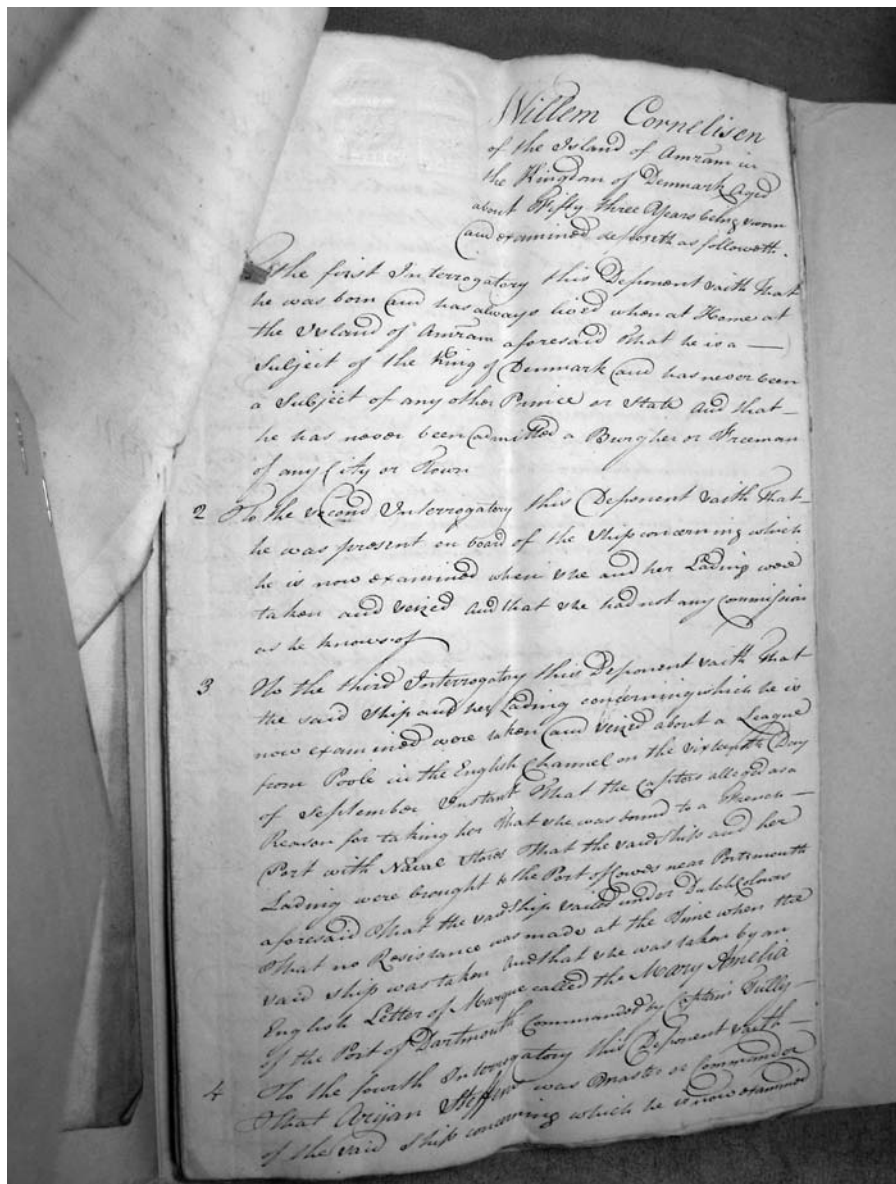 Willem Cornelisen
of the Island of Amram in
the Kingdom of Denmark aged
about Fifty three Years being sworn
and examined deposeth as followeth.
the first Interrogatory this Deponent saith that
he was born and has always lived when at Home at
the Island of Amram aforesaid That he is a —
Subject of the King of Denmark and has never been
a Subject of any other Prince or State And that —
he has never been admitted a Burgher or Freeman
of any City or Town
2 To the second Interrogatory this Deponent saith that —
he was present on board of the Ship concerning which
he is now examined when she and her Lading were
taken and seized And that she had not any Commission
as he knows of
3 To the third Interrogatory this Deponent saith that
the said Ship and her Lading concerning which he is
now examined were taken and seized about a League
from Poole in the English Channel on the sixteenth Day
of September Instant That the Captors alleged as a
Reason for taking her that she was bound to a French —
Port with Naval Stores That the said Ship and her
Lading were brought to the Port of Cowes near Portsmouth
aforesaid That the said Ship sailed under Dutch Colours
That no Resistance was made at the Time when the
said Ship was taken And that she was taken by an
English Letter of Marque called the Mary Amelia
of the Port of Dartmouth Commanded by Captain Tully —
4 To the fourth Interrogatory this Deponent saith —
That Arijan Steffens was Master or Commander
of the said Ship concerning which he is now examined